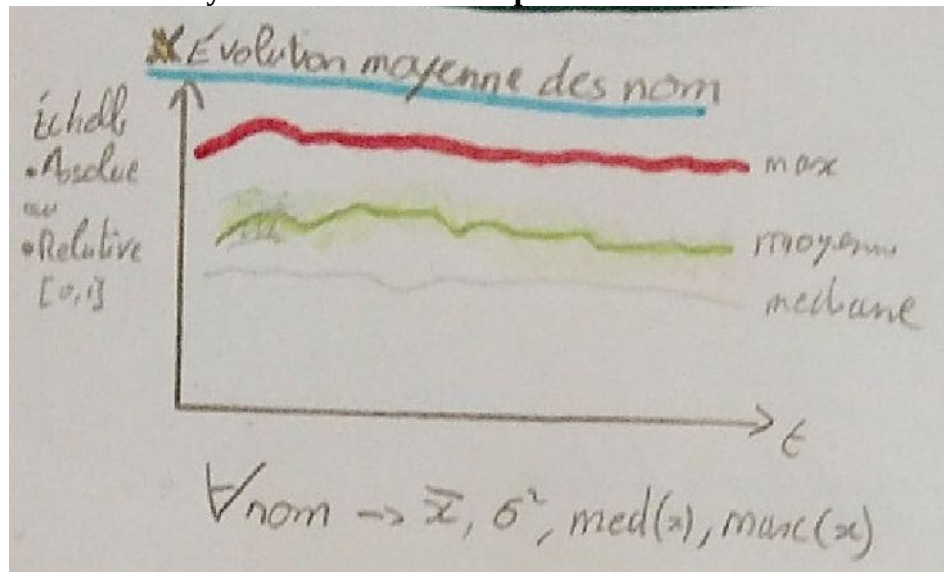 Évolution moyenne des nom
Échelle
• Absolue
ou
• Relative
[0,1]
max
moyenne
mediane
t
∀nom → x̄, σ², med(x), max(x)